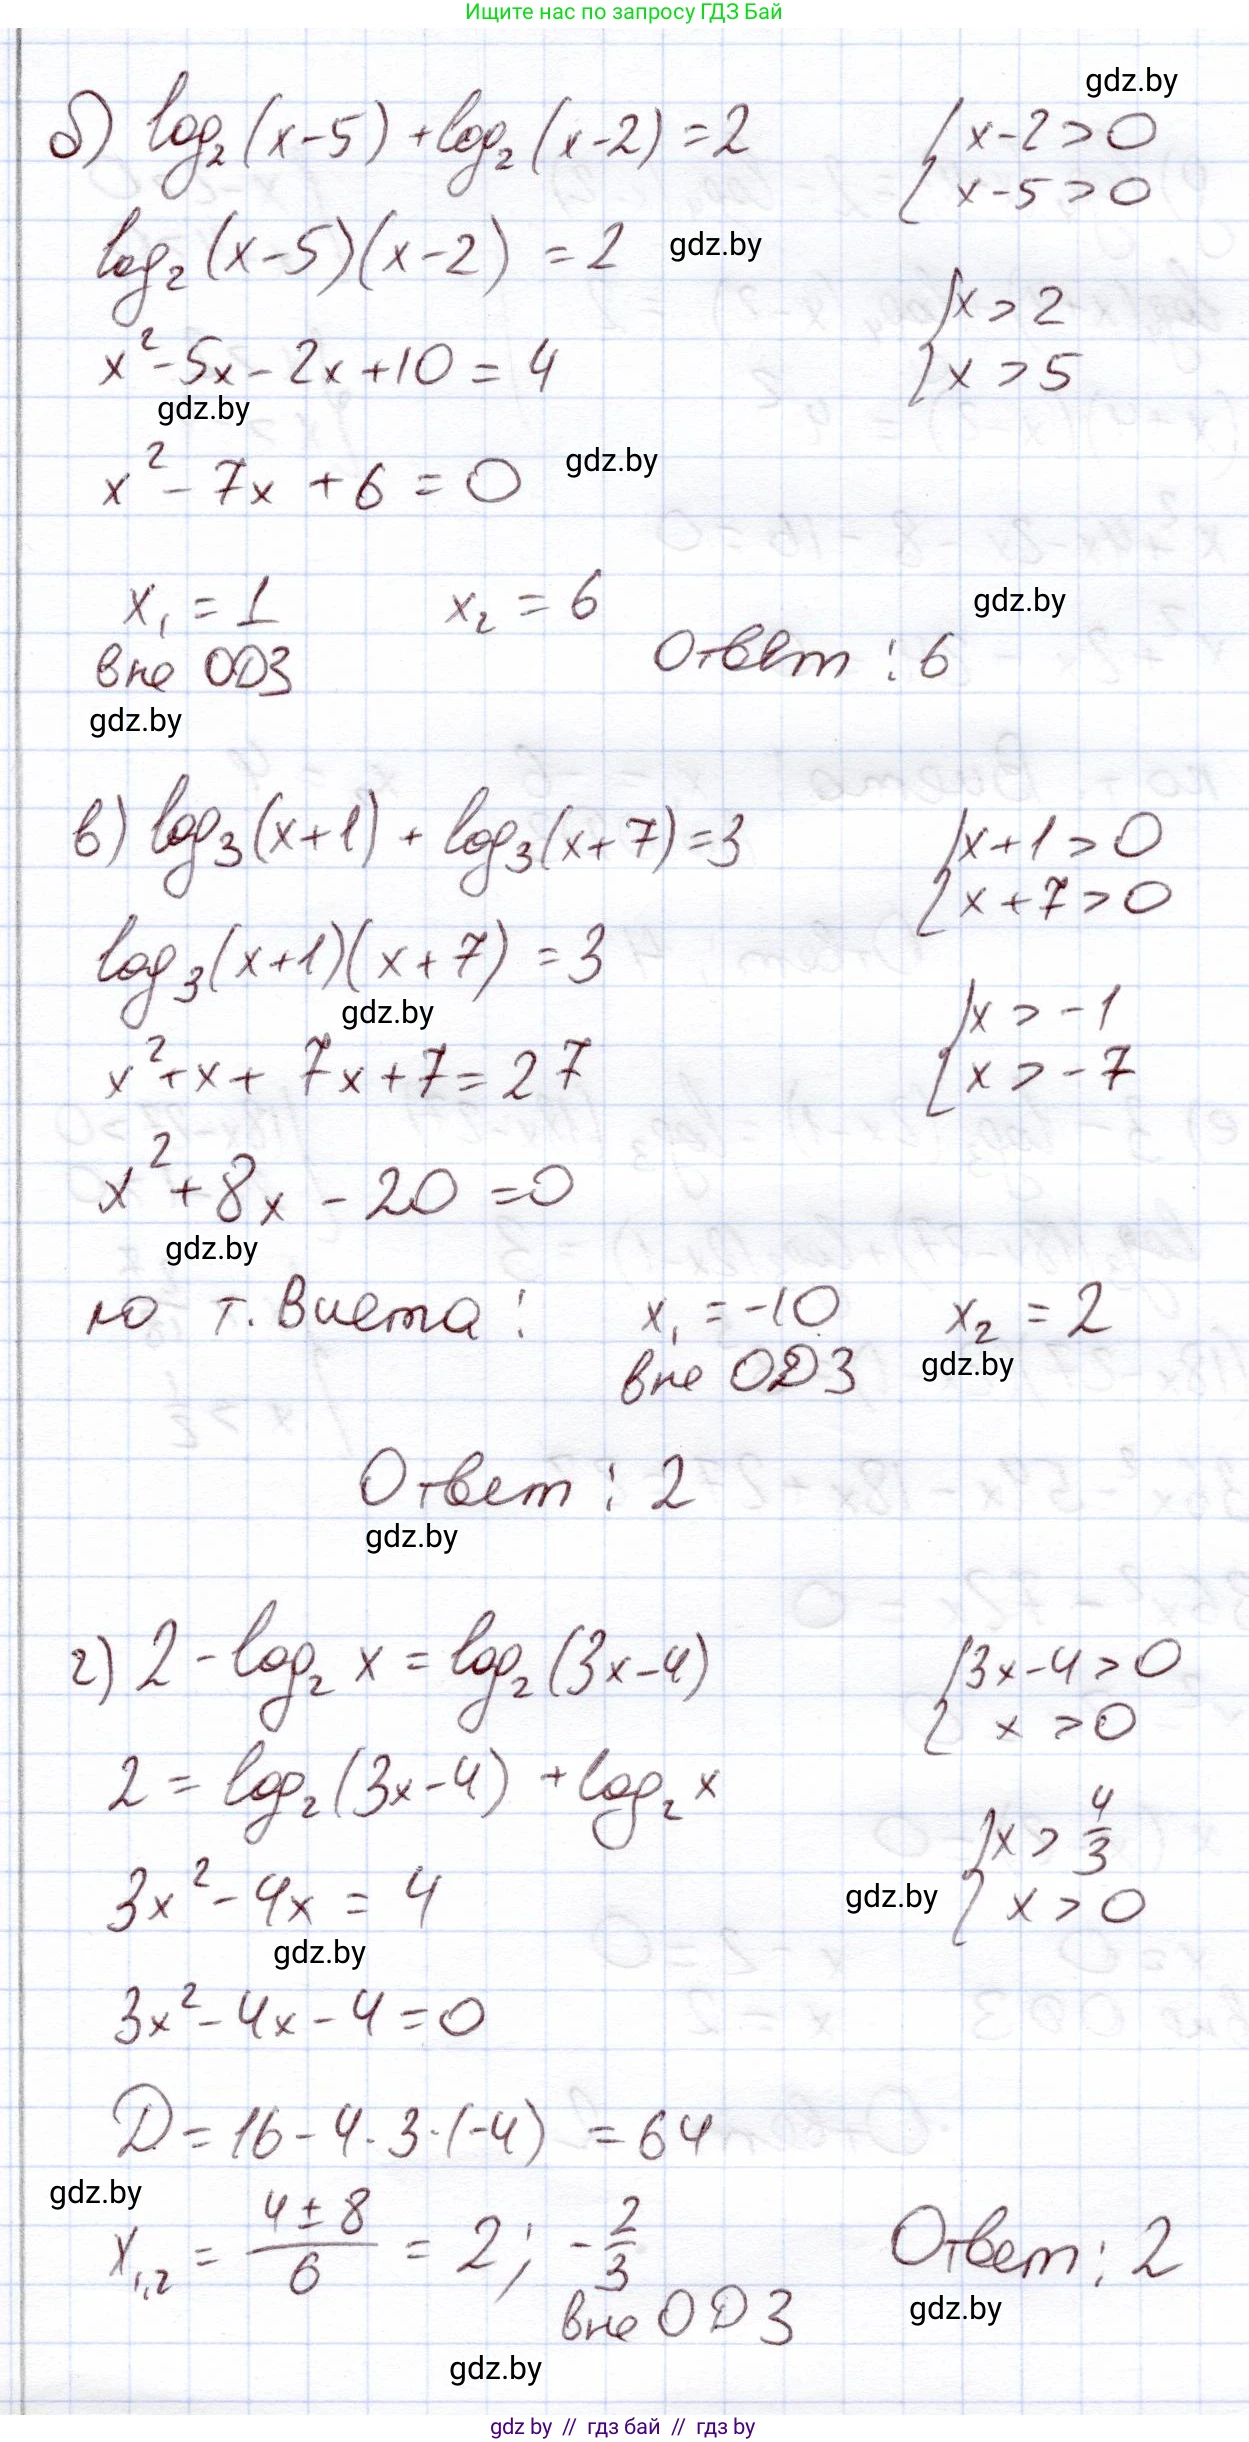 Ищите нас по запросу ГДЗ Бай
gdz.by
б) log₂(x-5) + log₂(x-2) = 2
{ x-2>0
{ x-5>0
log₂(x-5)(x-2) = 2
gdz.by
{ x > 2
{ x > 5
x² - 5x - 2x + 10 = 4
gdz.by
x² - 7x + 6 = 0
gdz.by
x₁ = 1
x₂ = 6
gdz.by
вне ОДЗ
Ответ: 6
gdz.by
в) log₃(x+1) + log₃(x+7) = 3
{ x+1>0
{ x+7>0
log₃(x+1)(x+7) = 3
gdz.by
{ x > -1
{ x > -7
x² + x + 7x + 7 = 27
x² + 8x - 20 = 0
gdz.by
по т. Виета: x₁ = -10 x₂ = 2
вне ОДЗ
gdz.by
Ответ: 2
gdz.by
г) 2 - log₂ x = log₂(3x-4)
{ 3x-4>0
{ x >0
2 = log₂(3x-4) + log₂ x
{ x > 4/3
{ x > 0
gdz.by
3x² - 4x = 4
gdz.by
3x² - 4x - 4 = 0
D = 16 - 4·3·(-4) = 64
gdz.by
x₁,₂ = (4±8)/6 = 2; -2/3
вне ОДЗ
Ответ: 2
gdz.by
gdz.by
gdz by // гдз бай // гдз by